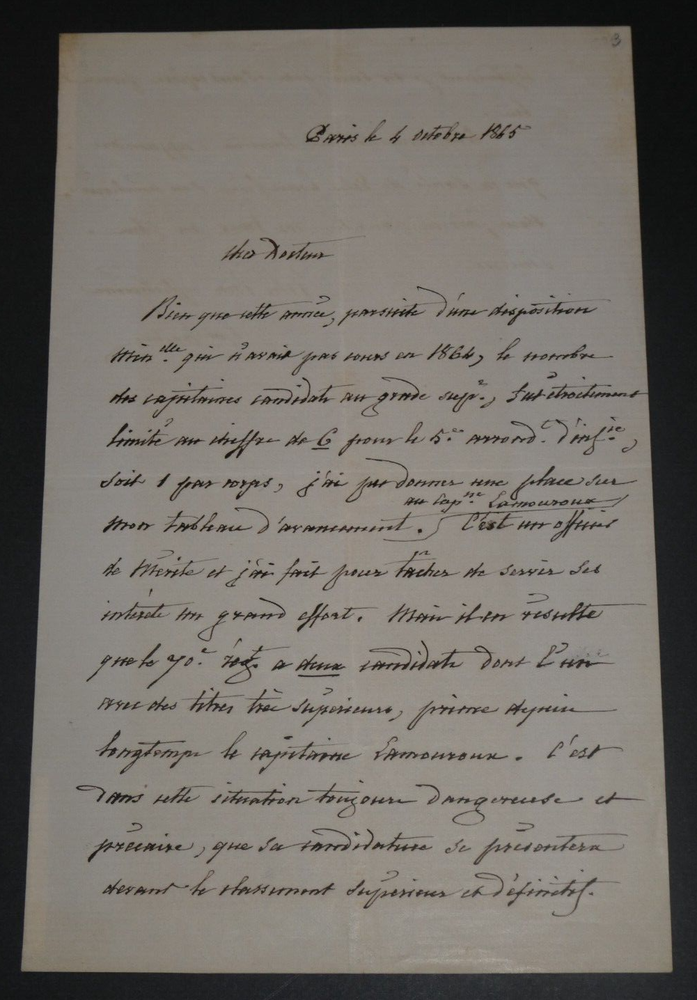 3
Paris le 4 octobre 1865
cher Docteur
Bien que cette année, par suite d'une disposition
Min.elle qui n'avait pas cours en 1864, le nombre
des capitaines candidats au grade supr., fut étroitement
limité au chiffre de 6 pour le 5.e arrond.t d'inf.ie,
soit 1 par corps, j'ai pu donner une place sur
au Cap.ne Lamouroux
mon tableau d'avancement. C'est un officier
de Mérite et j'ai fait pour tacher de servir ses
intérêts un grand effort. Mais il en résulte
que le 70.e rég.t a deux candidats dont l'un
avec des titres très supérieurs, prime depuis
longtemps le capitaine Lamouroux. C'est
dans cette situation toujours dangereuse et
précaire, que sa candidature se présentera
devant le classement supérieur et définitif.